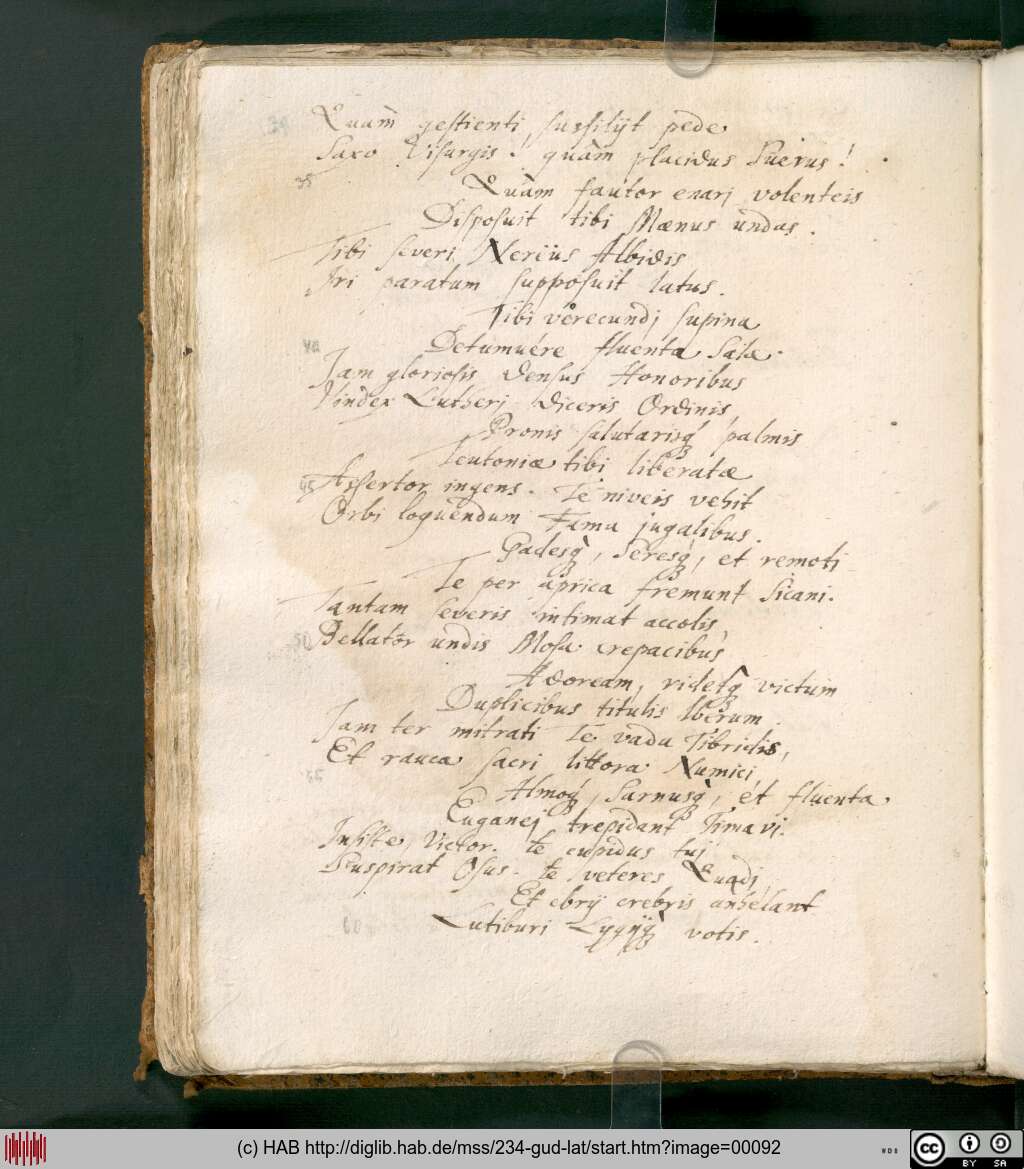 Quam gestienti sussilijt pede
Saxo Visurgis. quàm placidus Suerus!
35
Quàm fautor enarj volenteis
Disposuit tibi Mænus undas.
Tibi severi Nereüs Albidis
Iri paratum supposuit latus.
Tibi verecundj supina
40
Detumuére fluenta Salæ.
Jam gloriosis densus Honoribus
Vindex Lutherj diceris Ordinis,
Pronis salutarisq́ palmis
Teutoniæ tibi liberatæ
45
Assertor ingens. Te niveis vehit
Orbi loquendum Fama jugalibus.
Gadesq̀, Seresq́, et remoti
Te per aprica fremunt Sicani.
Tantam severis intimat accolis
50
Bellator undis Mosa crepacibus
Adoream, ridetq̀ victum
Duplicibus titulis Iberum.
Jam ter mitrati Te vada Tibridis,
Et rauca sacri littora Numici,
55
Almoq́, Sarnusq̀, et fluenta
Euganej trepidant Timavi.
Insiste, Victor. te cupidus tuj
Suspirat Osus. te veteres Quadj,
Et ebrij crebris anhelant
60
Lutiburi Lygijq̀ votis.
(c) HAB http://diglib.hab.de/mss/234-gud-lat/start.htm?image=00092
WDB
cc
BY SA